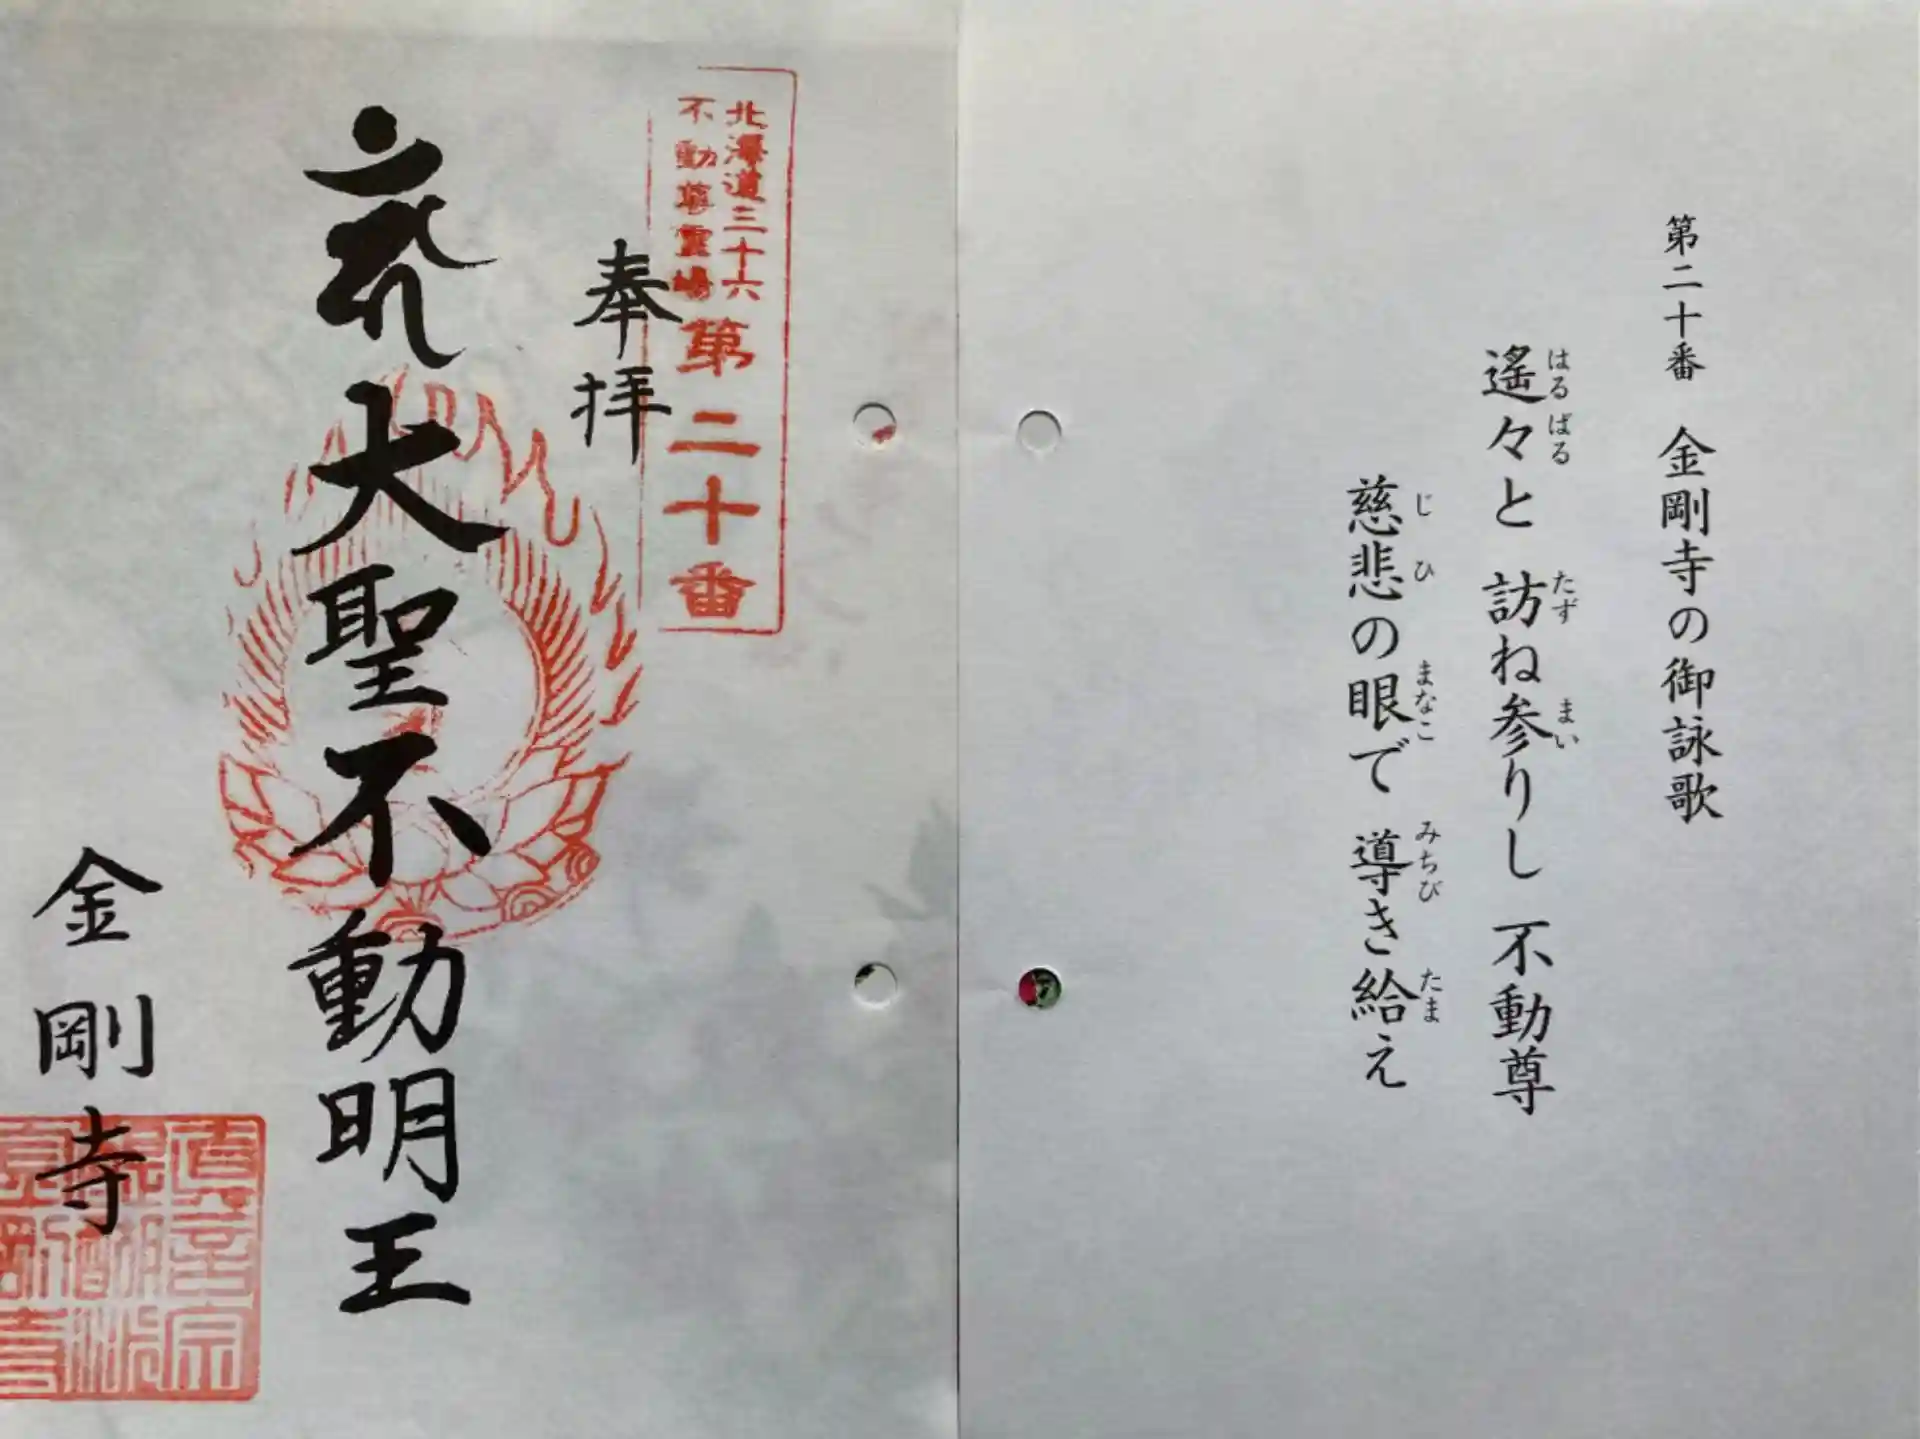 第二十番 金剛寺の御詠歌
遙々と 訪ね参りし 不動尊
はるばる たず まい
慈悲の眼で 導き給え
じ ひ まなこ みちび たま
北海道三十六
不動尊霊場
第二十番
奉拝
大聖不動明王
金剛寺